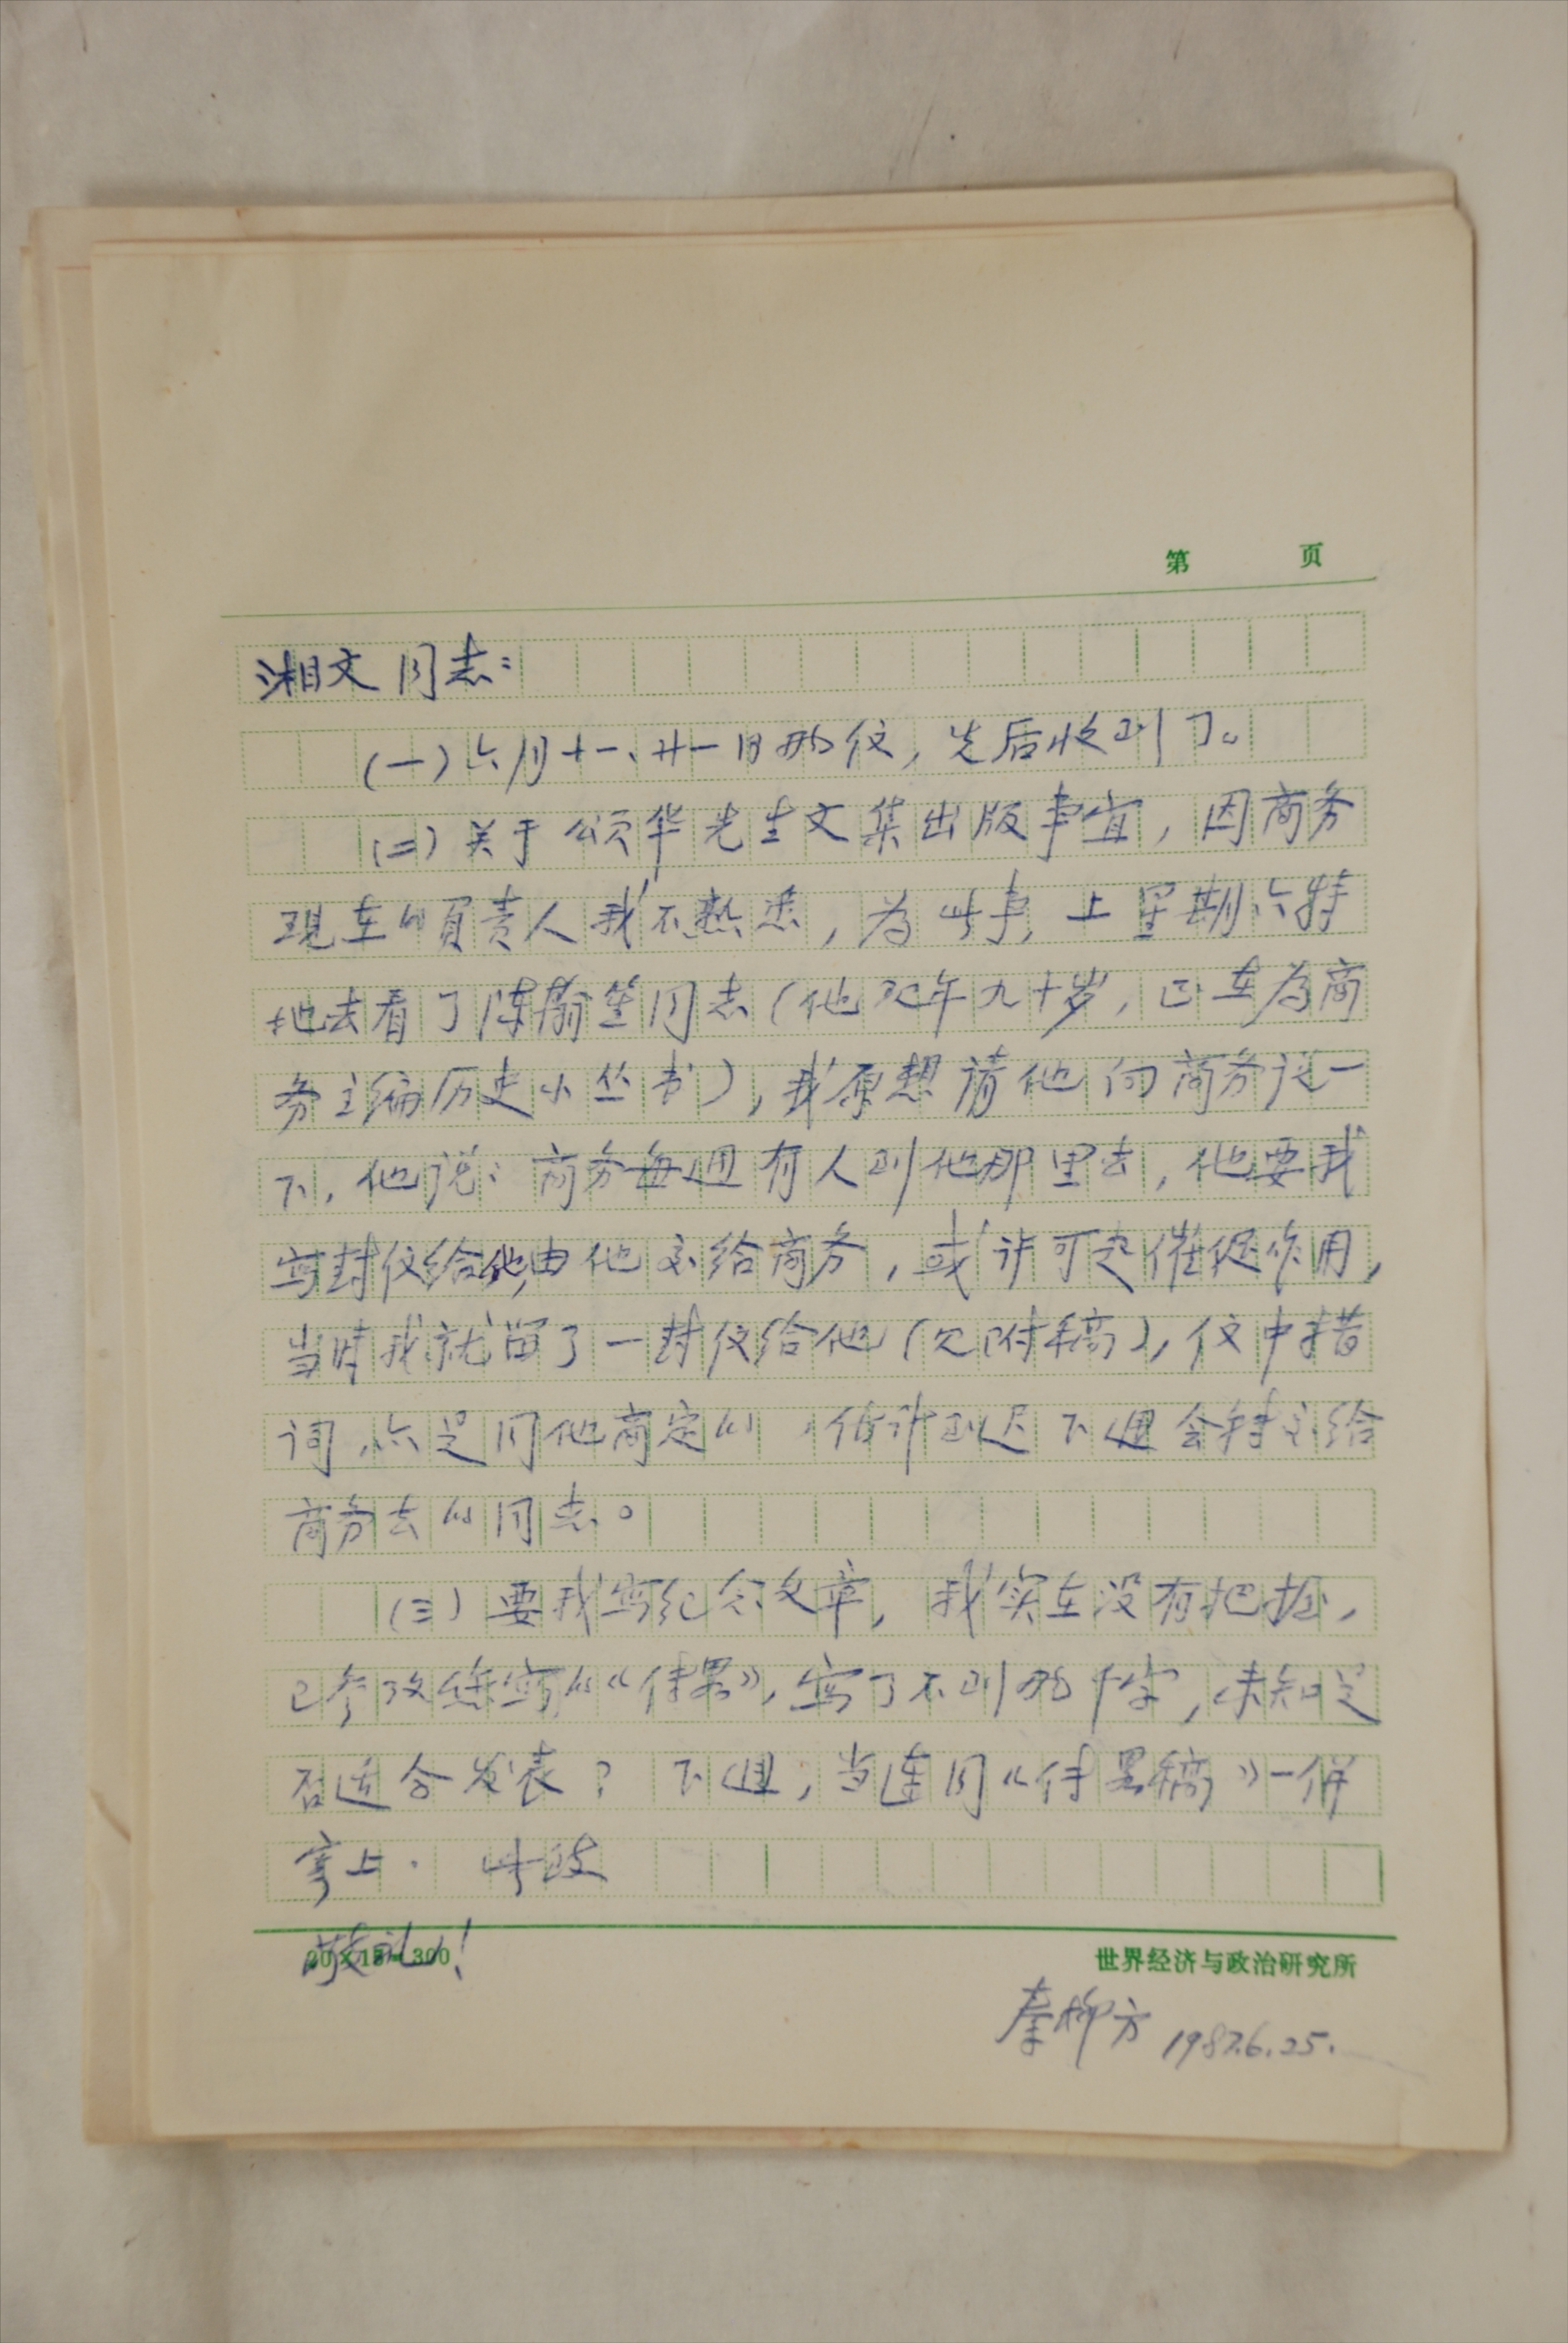 第 页
湘文同志：
(一)六月十一、廿一日两信，先后收到了。
(二)关于颂华先生文集出版事宜，因商务
现在的负责人我不熟悉，为此事，上星期六特
地去看了陈翰笙同志(他现年九十岁，正在为商
务主编历史小丛书)，我原想请他向商务说一
下，他说：商务每週有人到他那里去，他要我
写封信给他，由他交给商务，或许可起催促作用，
当时我就留了一封信给他(见附稿)，信中措
词，亦是同他商定的，估计到迟下週会转交给
商务去的同志。
(三)要我写纪念文章，我实在没有把握，
已参攷您写的《传畧》，写了不到两千字，未知是
否适合发表？下週，当连同《传畧稿》一併
寄上. 此致
敬礼！
20×15=300 世界经济与政治研究所
秦柳方 1987.6.25.